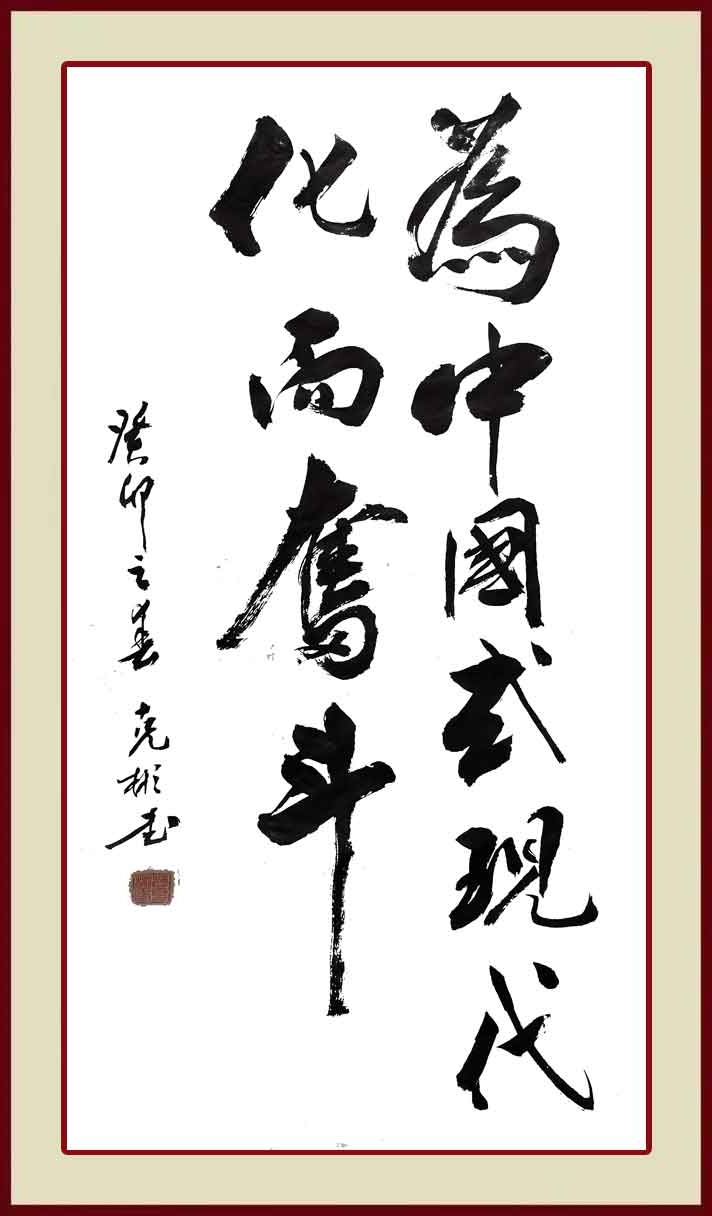 為中國式現代
化而奮斗
癸卯之春 克彬书